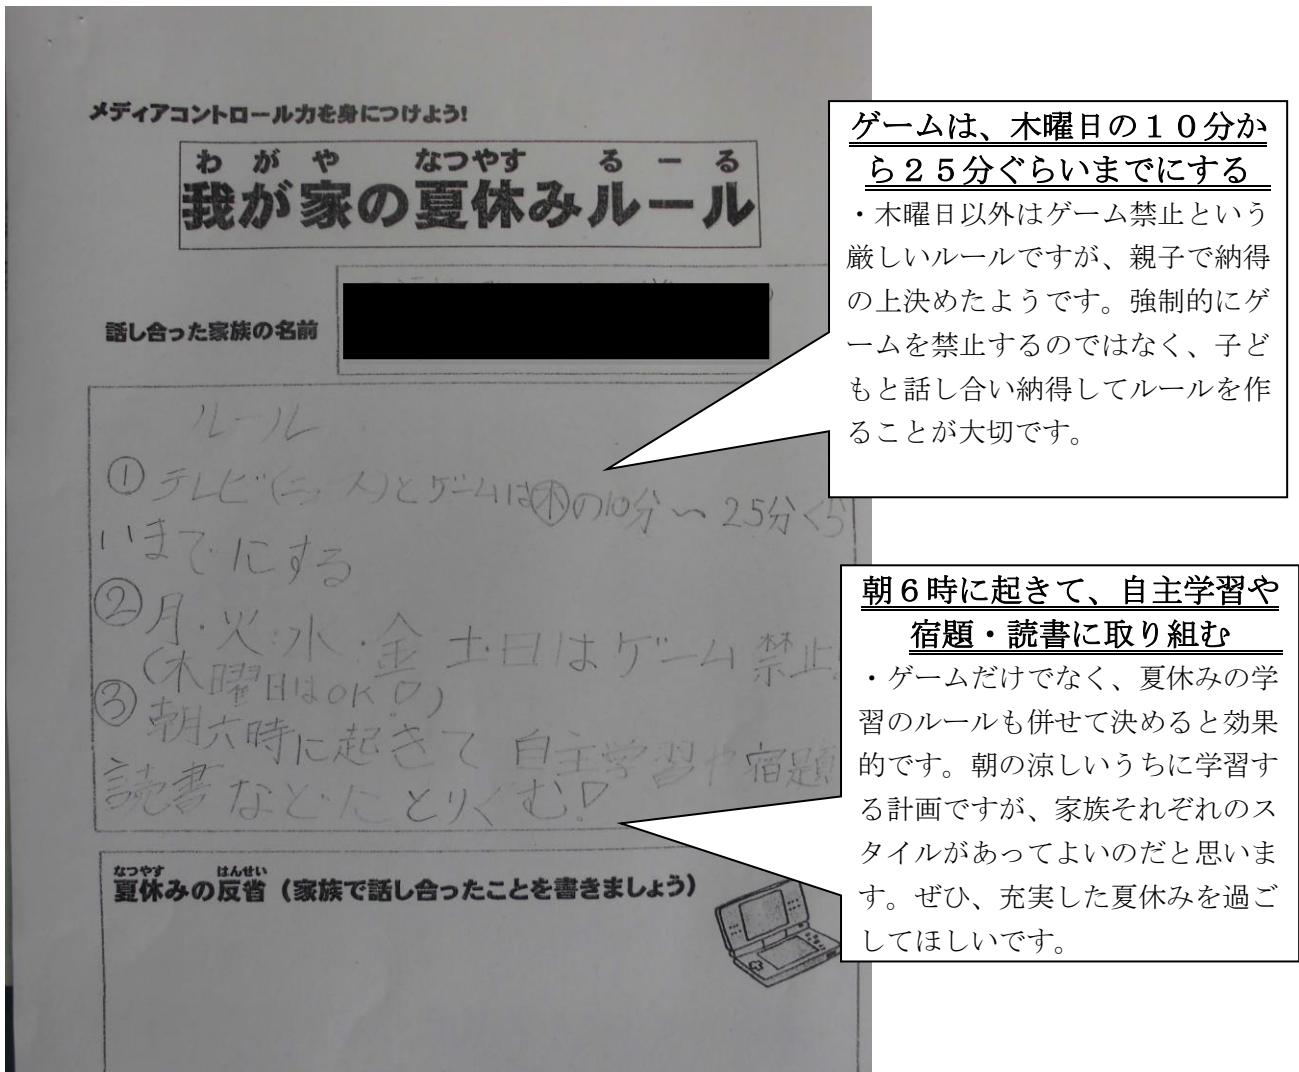 メディアコントロール力を身につけよう!
わがや なつやす るーる
我が家の夏休みルール
話し合った家族の名前
ルール
①テレビ(ニュース)とゲームは㊍の10分〜25分くら
いまでにする
②月・火・水・金 土・日はゲーム禁止!
(木曜日はOK!)
③朝六時に起きて 自主学習や宿題
読書などにとりくむ!
なつやす はんせい
夏休みの反省(家族で話し合ったことを書きましょう)
ゲームは、木曜日の10分か
ら25分ぐらいまでにする
・木曜日以外はゲーム禁止という
厳しいルールですが、親子で納得
の上決めたようです。強制的にゲ
ームを禁止するのではなく、子ど
もと話し合い納得してルールを作
ることが大切です。
朝6時に起きて、自主学習や
宿題・読書に取り組む
・ゲームだけでなく、夏休みの学
習のルールも併せて決めると効果
的です。朝の涼しいうちに学習す
る計画ですが、家族それぞれのス
タイルがあってよいのだと思いま
す。ぜひ、充実した夏休みを過ご
してほしいです。